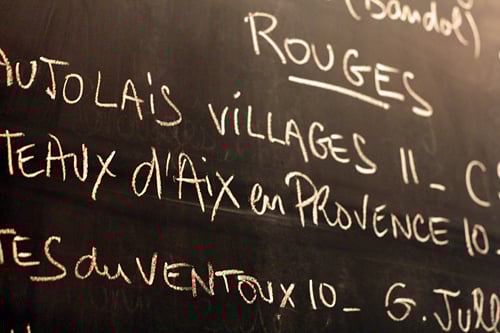 (Bandol)
ROUGES
AUJOLAIS VILLAGES 11_ C
TEAUX d'AIX en PROVENCE 10_
TES du VENTOUX 10_ G. Jull